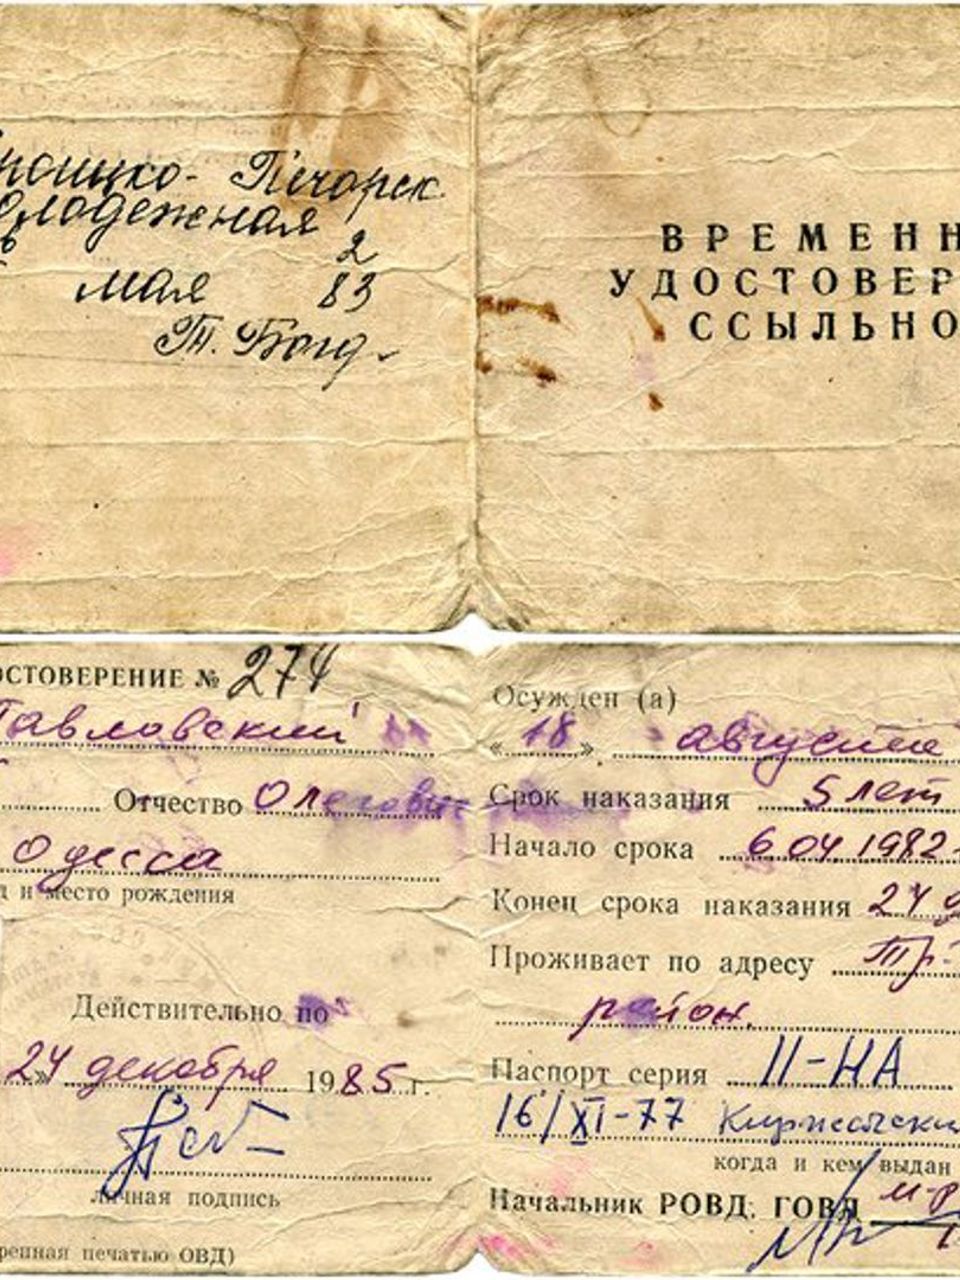 Печорск
мая 83
ВРЕМЕНН
УДОСТОВЕР
ССЫЛЬНО
ОСТОВЕРЕНИЕ № 274
Павловский
Отчество Олегович
Одесса
д и место рождения
Действительно по
24 декабря 1985 г.
личная подпись
печатью ОВД)
Осужден (а)
« 18 » августа
Срок наказания 5 лет
Начало срока 6 04 1982
Конец срока наказания 24
Проживает по адресу Тр-
район.
Паспорт серия II-НА
16/XI-77
когда и кем выдан
Начальник РОВД, ГОВД